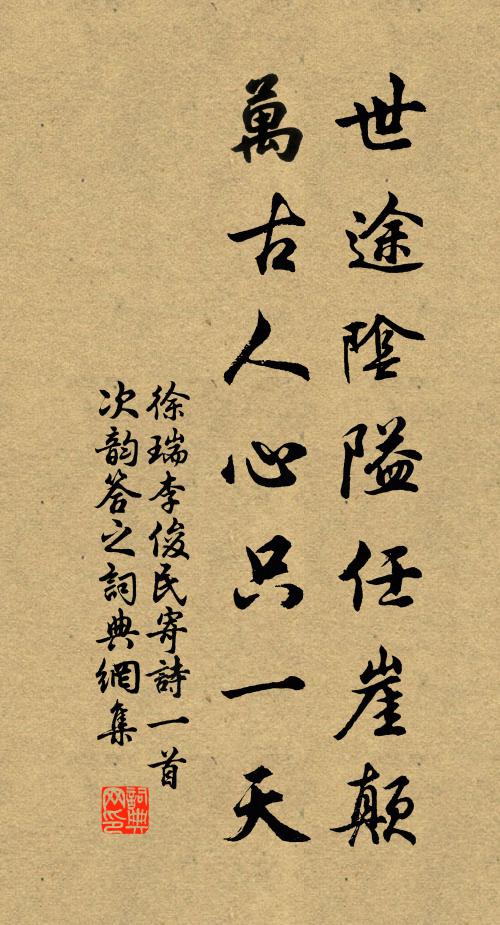 世途險隘任崖顛
萬古人心只一天
徐瑞李俊民寄詩一首
次韵答之詞典網集
詞典
网印